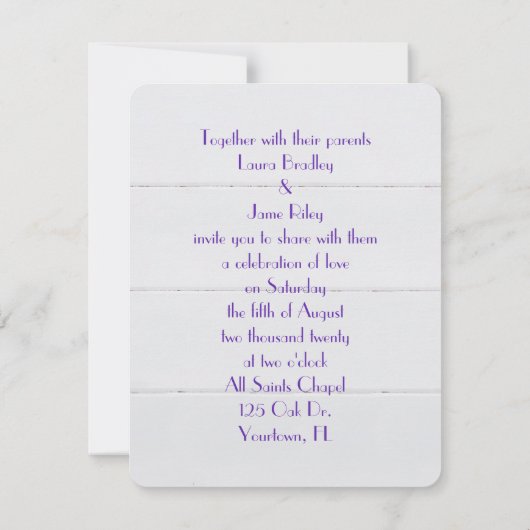 Together with their parents
Laura Bradley
&
Jame Riley
invite you to share with them
a celebration of love
on Saturday
the fifth of August
two thousand twenty
at two o'clock
All Saints Chapel
125 Oak Dr.
Yourtown, FL